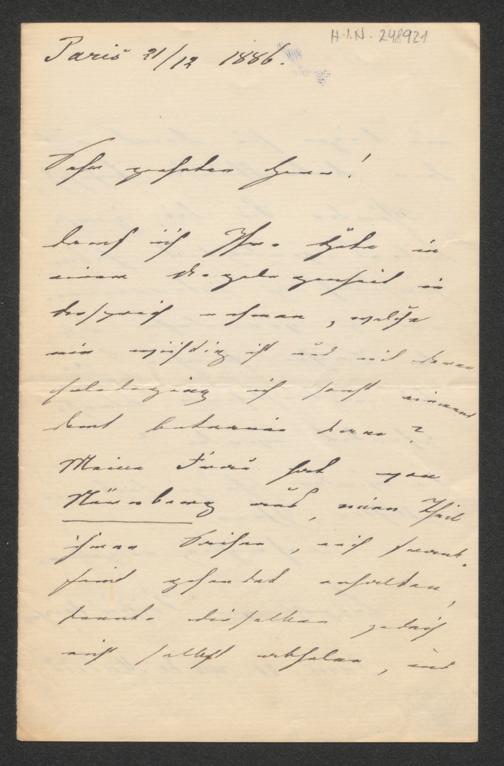 H.I.N. 248921
Paris 21/12 1886.
Sehr geehrter Herr!
Darf ich Ihre Güte in
einer Angelegenheit in
Anspruch nehmen, welche
mir wichtig ist und mit deren
ich sonst
dort betrauen kann?
Meine Frau hat von
Nürnberg aus, einen Theil
ihrer, nach Frank-
gesendet erhalten,
konnte dieselben jedoch
nicht selbst abholen, und